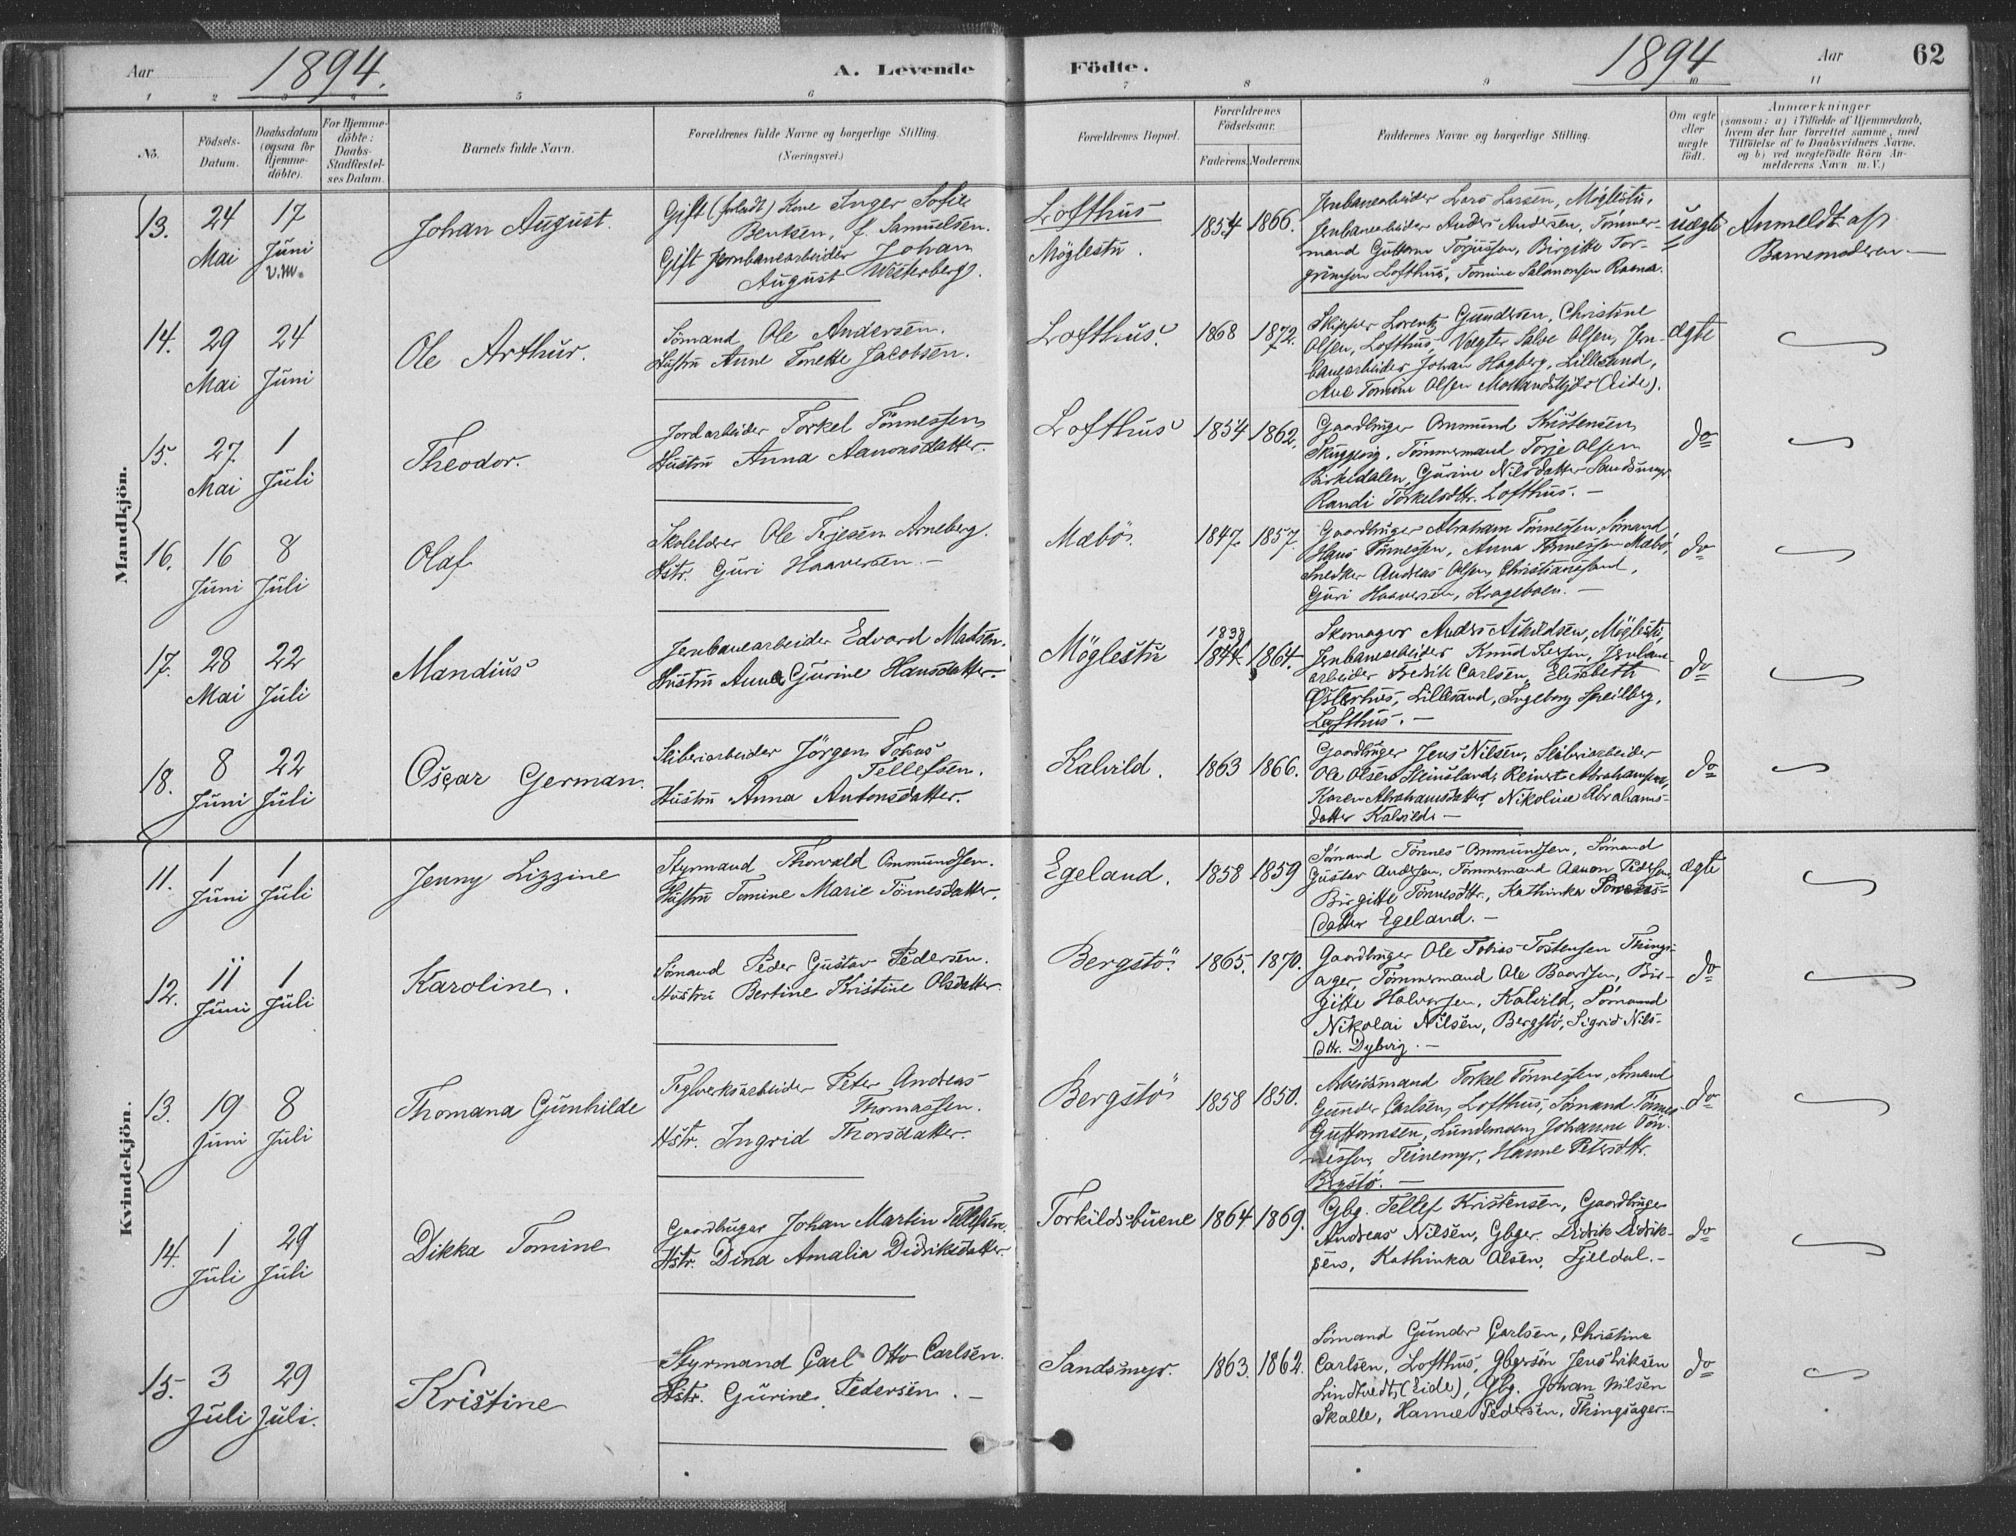 Aar 1894. A. Levende Födte. 1894 Aar 62
1 2 3 4 5 6 7 8 9 10 11
No. Födsels-Datum. Daabsdatum (ogsaa for Hjemme-döbte). For Hjemme-döbte: Daabs-Stadfæstel-ses Datum. Barnets fulde Navn. Forældrenes fulde Navne og borgerlige Stilling. (Næringsvei.) Forældrenes Bopæl. Forældrenes Födselsaar. Faderens. Moderens. Faddernes Navne og borgerlige Stilling. Om ægte eller uægte födt. Anmærkninger (saasom: a) i Tilfælde af Hjemmedaab, hvem der har forrettet samme, med Tilföielse af to Daabsvidners Navne, og b) ved uægtefödte Börn An-melderens Navn m. V.)
Mandkjön.
13. 24 Mai 17 Juni v.m. Johan August.
Gift Kone Inger Sofie
Bentsen, f. Samuelsen.
Gift Jernbanearbeider Johan
August Westerberg.
Lofthus
Möglestu.
1854 1866.
Jernbanearbeider Lars Larsen, Möglestu,
Jernbanearbeider Anders Andersen, Tømmer-
mand Guttorm Torjussen, Birgitte Tor-
grimsen Lofthus, Tomine Salamonsen Raana.
uægte Anmeldt af
Barnemoderen.—
14. 29 Mai 24 Juni Ole Arthur.
Sömand Ole Andersen.
Hustru Anne Tonette Jacobsen.
Lofthus. 1868 1872.
Skipper Lorentz Gundersen, Christine
Olsen, Lofthus, Vægter Salve Olsen, Jern-
banearbeider Johan Hagberg, Lillesand,
Ane Tomine Olsen (Eide).
ægte
15. 27. Mai 1 Juli Theodor.
Jordarbeider Torkel Tönnessen
Hustru Anna Aanonsdatter.
Lofthus 1854 1862.
Gaardbruger Ommund Kristensen
Tömmermand Torje Olsen
Birkedalen, Gurine Nilsdatter Sandsmyr
Randi Torkelsdtr. Lofthus. —
do
16. 16 Juni 8 Juli Olaf
Skolelærer Ole Terjesen Arneberg.
Hstr. Guri Haaversen. —
Mæbö. 1847. 1857.
Gaardbruger Abraham Tönnessen, Sömand
Hans Tönnessen, Anna Tönnessen Mæbö,
Snedker Andreas Olsen, Christianssand,
Guri Haaversen, Krageboen. —
do
17. 28 Mai 22 Juli Mandius
Jernbanearbeider Edvard Madsen.
Hustru Anne Gurine Hansdatter.
Möglestu 1838 1844. 1864.
Skomager Anders Möglestu,
Jernbanearbeider Knud Jernbane-
arbeider Fredrik Carlsen, Elisabeth
Østerhus, Lillesand, Ingeborg Speilberg,
Lofthus. —
do
18. 8 Juni 22 Juli Oscar German.
Sliberiarbeider Jörgen Tobias
Tellefsen.
Hustru Anna Antonsdatter.
Kalvild. 1863 1866.
Gaardbruger Jens Nilsen, Sliberiarbeider
Ole Olsen Steinsland, Reinert Abrahamsen,
Karen Abrahamsdatter, Nikoline Abrahams-
datter Kalvild. —
do
Kvindekjön.
11. 1 Juni 1 Juli Jenny Lizzine
Styrmand Thorvald Ommundsen.
Hustru Tomine Marie Tönnesdatter.
Egeland. 1858 1859
Sömand Tönnes Ommundsen, Sömand
Gustav Andersen, Tömmermand Aanon Pedersen,
Birgitte Tönnesdtr., Kathinka
datter Egeland. —
ægte
12. 11 Juni 1 Juli Karoline.
Sömand Peder Gustav Pedersen.
Hustru Bertine Kristine Olsdatter.
Bergstö. 1865. 1870.
Gaardbruger Ole Tobias Tostensen Things-
ager, Tömmermand Ole Baardsen, Bir-
gitte Halvorsen, Kalvild, Sömand
Nikolai Nilsen, Bergstö, Sigrid Nils-
dtr. Dybvig. —
do
13. 19 Juni 8 Juli Thomana Gunhilde
Teglverksarbeider Peter Andreas
Thomassen.
Hstr. Ingrid Thorsdatter.
Bergstö 1858 1850.
Arbeidsmand Torkel Tönnessen, Sömand
Gunder Carlsen, Lofthus, Sömand Tönnes
Guttormsen, Lundemoen, Johanne Tön-
nessen, Teinemyr, Hanne Petersdtr.
Bergstö. —
do
14. 1 Juli 29 Juli Dikka Tomine
Gaardbruger Johan Martin Tellefsen.
Hstr. Dina Amalia Didriksdatter.
Torkildsbuene 1864 1869.
Gbg. Tellef Kristensen, Gaardbruger
Andreas Nilsen, Gbger. Didrik Didrik-
sen, Kathinka Olsen, Fjeldal. —
do
15. 3 Juli 29 Juli. Kristine
Styrmand Carl Otto Carlsen.
Hstr. Gurine Pedersen. —
Sandsmyr. 1863. 1862.
Sömand Gunder Carlsen, Christine
Carlsen, Lofthus, Gbgersön Jens Eriksen
Lindtvedt (Eide), Gbg. Johan Nilsen
Skalle, Hanne Pedersen, Thingsager. —
do